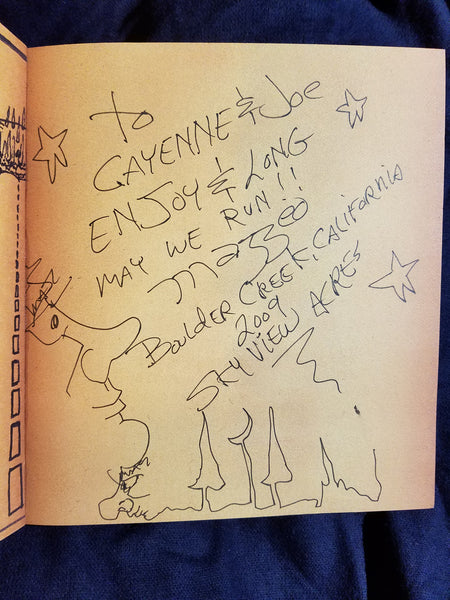 To
CAYENNE & JOE
ENJOY & LONG
MAY WE RUN!!
BOULDER CREEK, CALIFORNIA
2009
SKY VIEW ACRES